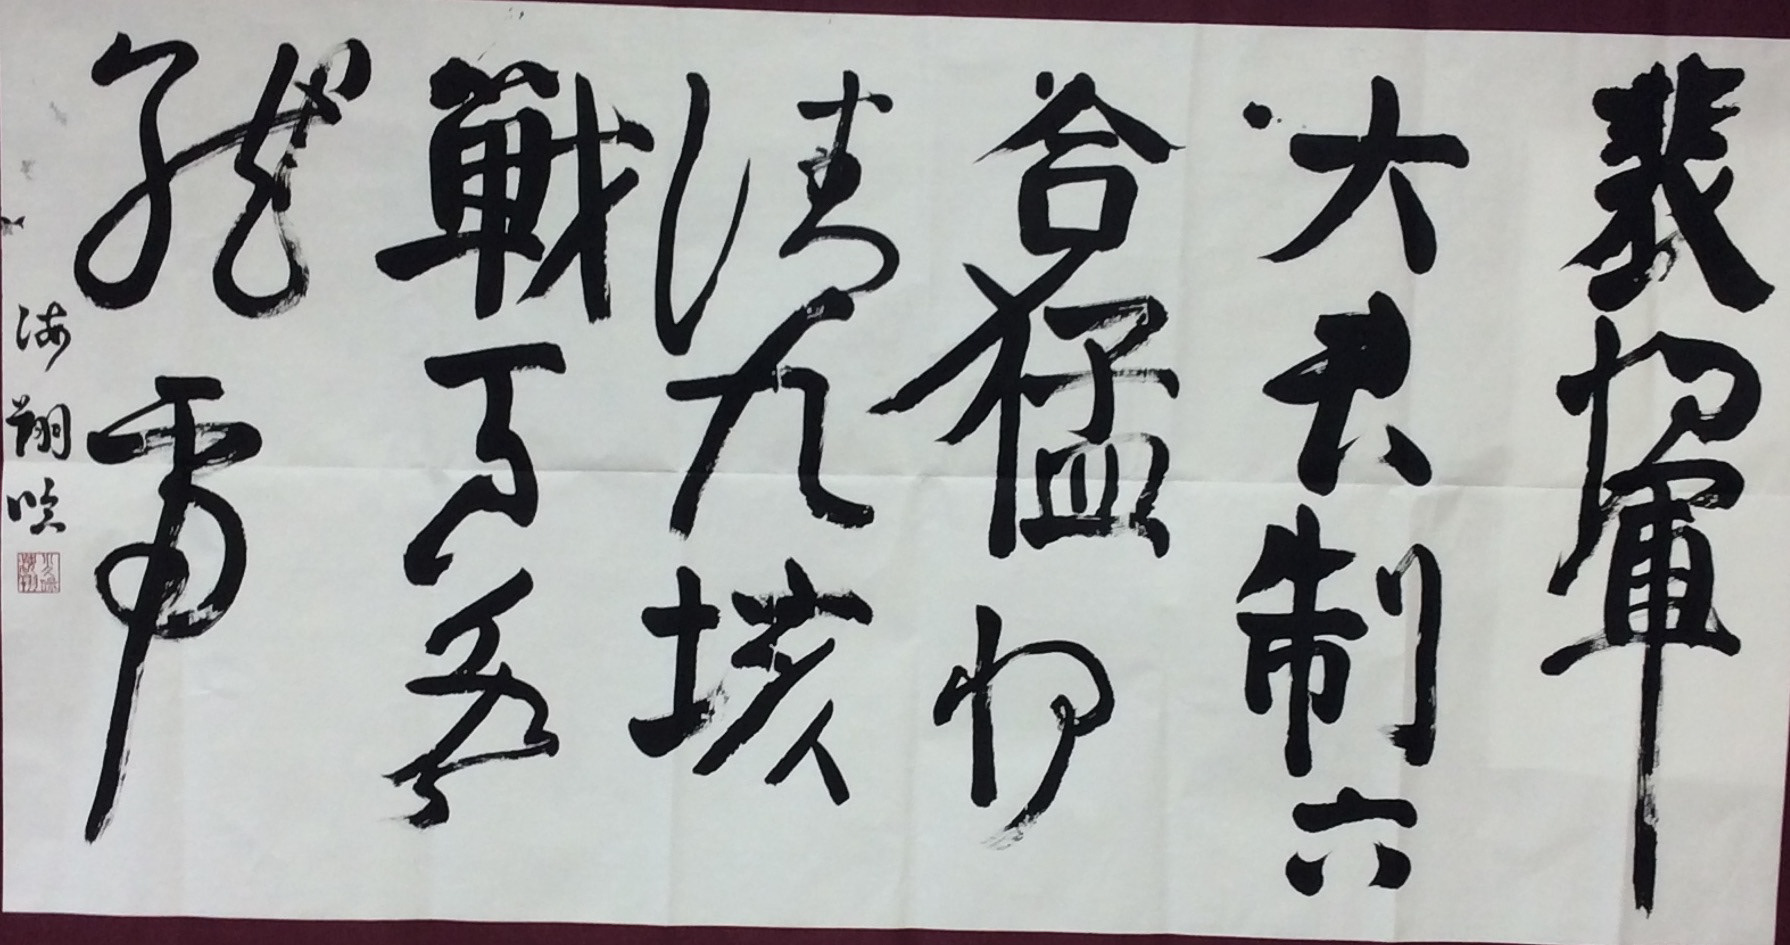 裴将軍
大君制六
合猛将
清九垓
戰馬若
龍虎
海翔臨